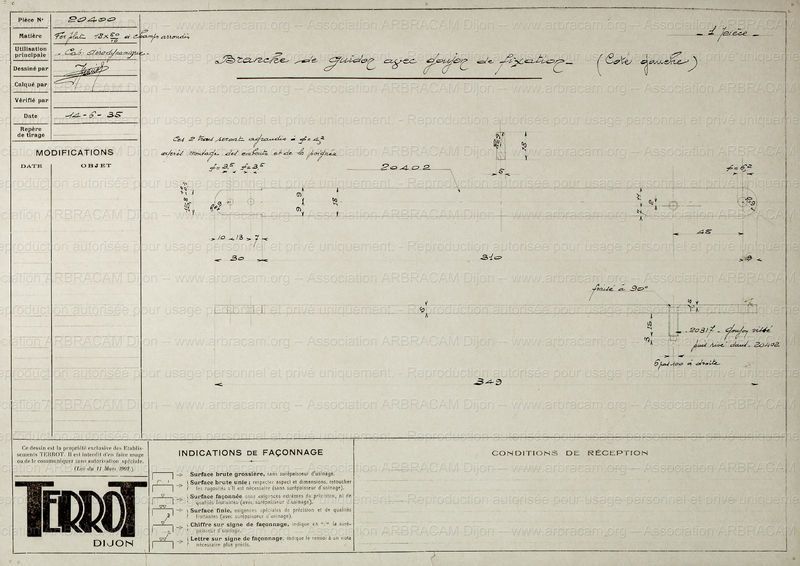 Pièce N° 20400
Matière Fer plat 18 x 50/10 et champs arrondis
Utilisation principale - Cab. Aérodynamique -
Dessiné par
Calqué par
Vérifié par
Date 14 - 6 - 35
Repère de tirage
MODIFICATIONS
DATE OBJET
- 1 pièce -
Branche de guidon avec goujon de fixation - (Côté gauche)
Ces 2 trous seront
après montage des embouts et de la poignée
20402
18
5
18
10 13 7
30
310
45
9
fraisé à 90°
20317 - Goujon vissé
puis rivé dans 20402
6 pas 100 à droite
349
Ce dessin est la propriété exclusive des Etablis-
sements TERROT. Il est interdit d'en faire usage
ou de le communiquer sans autorisation spéciale.
(Loi du 11 Mars 1902.)
TERROT
DIJON
INDICATIONS DE FAÇONNAGE
Surface brute grossière, sans surépaisseur d'usinage.
Surface brute unie; respecter aspect et dimensions, retoucher
les rugosités s'il est nécessaire (sans surépaisseur d'usinage).
Surface façonnée sans exigences extrêmes de précision, ni de
qualités frottantes (avec surépaisseur d'usinage).
Surface finie, exigences spéciales de précision et de qualités
frottantes (avec surépaisseur d'usinage).
Chiffre sur signe de façonnage, indique en "/" la surépaisseur d'usinage.
Lettre sur signe de façonnage, indique le renvoi à un nota
nécessaire plus précis.
CONDITIONS DE RÉCEPTION
www.arbracam.org – Association ARBRACAM Dijon – Reproduction autorisée pour usage personnel et privé uniquement.